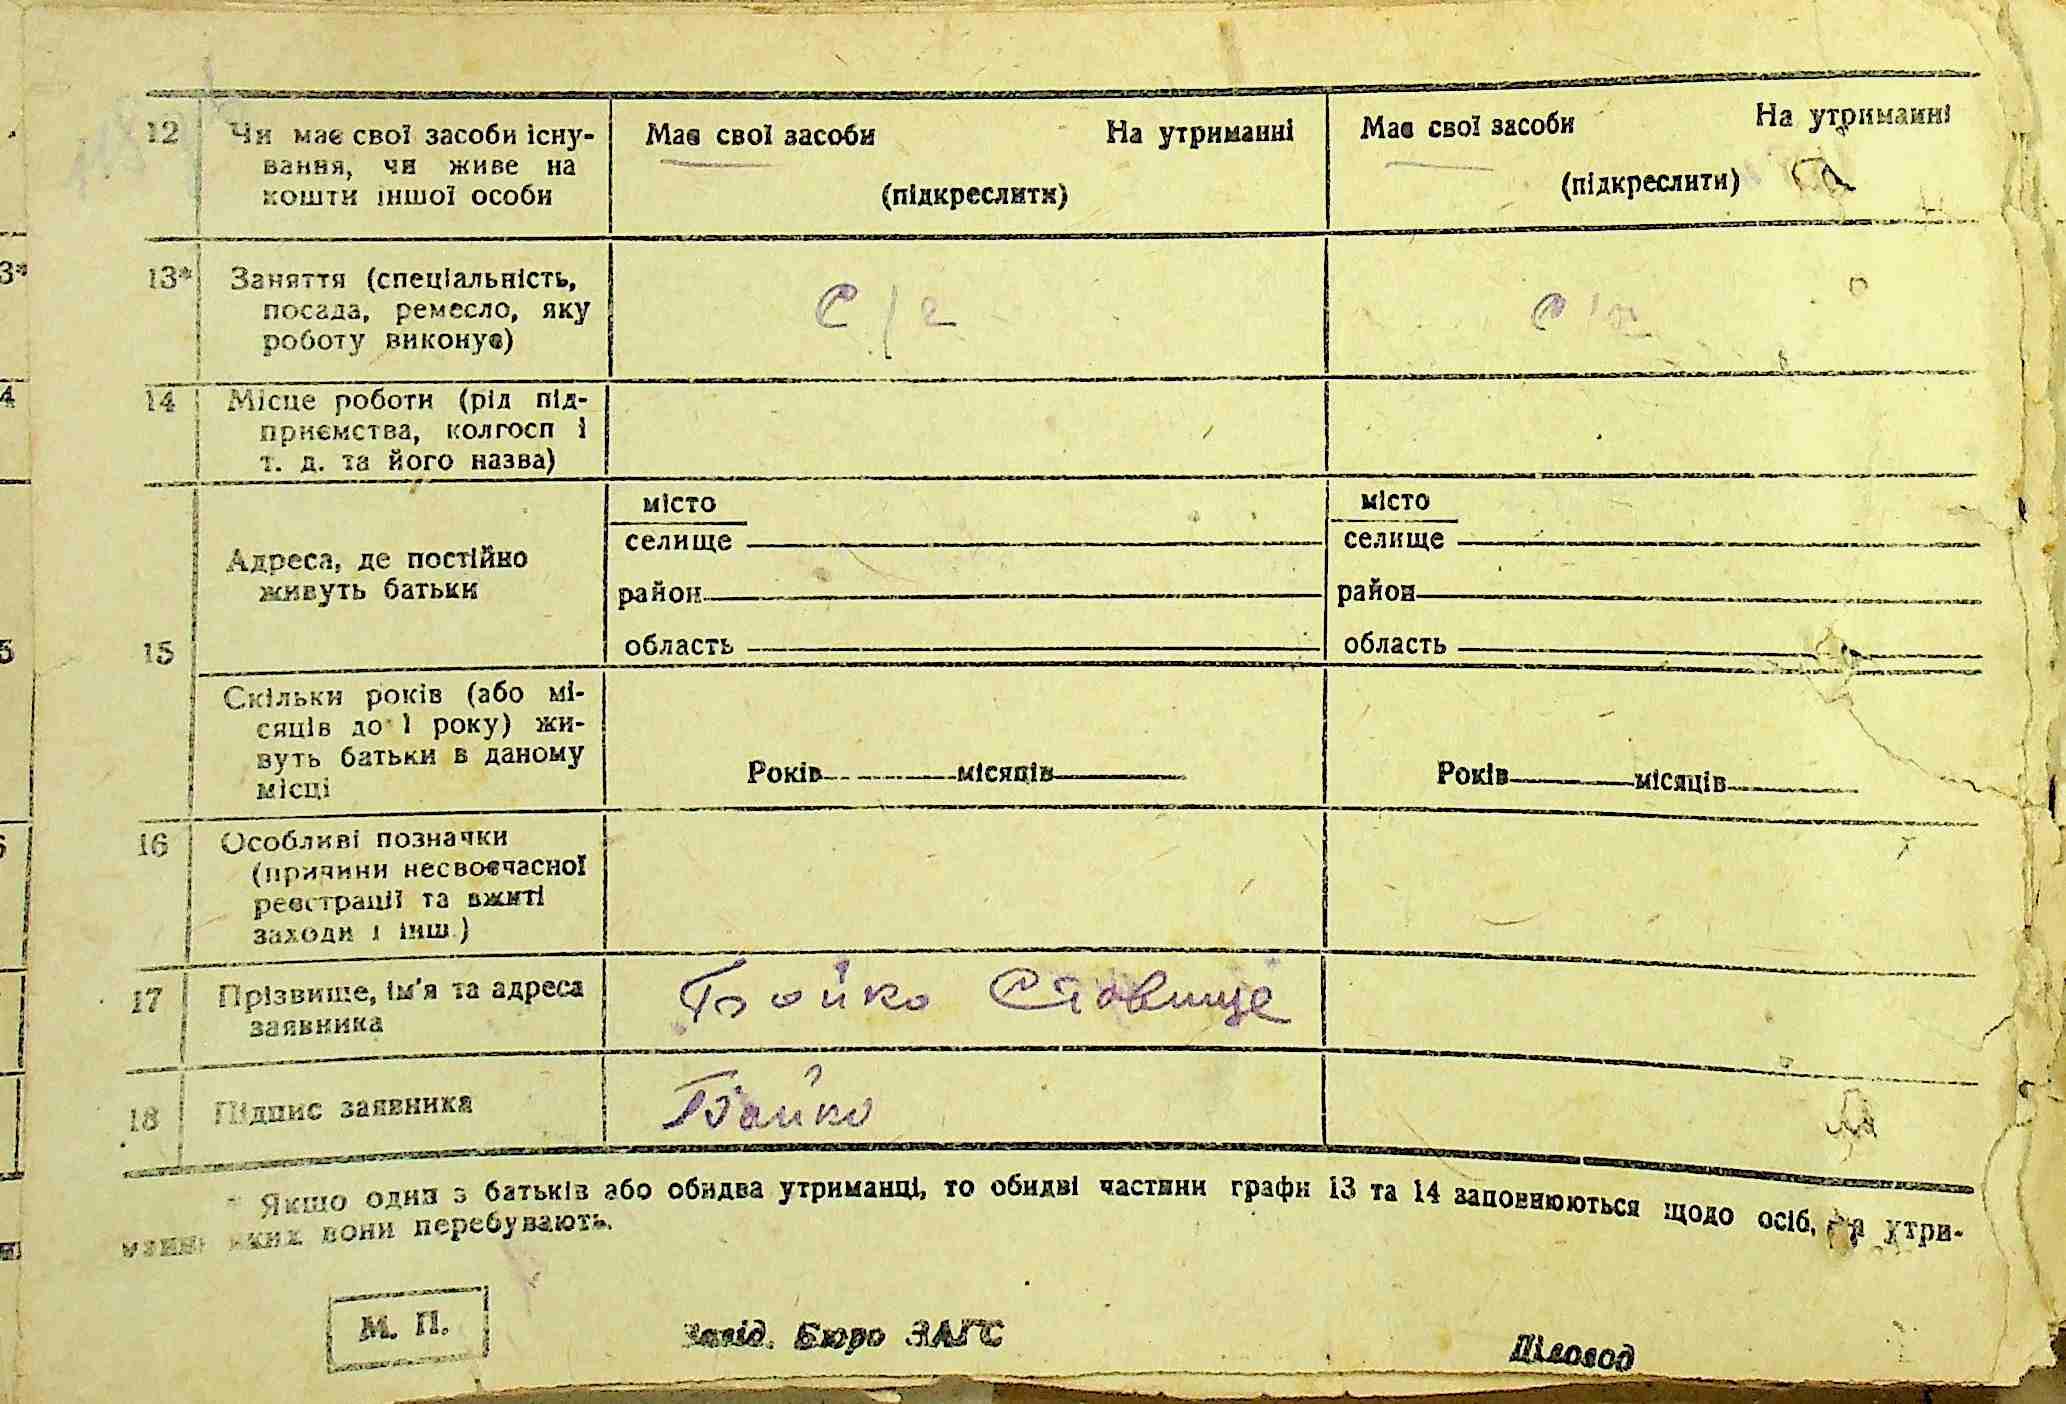 12 Чи має свої засоби існу-
вання, чи живе на
кошти іншої особи
Має свої засоби На утриманні
(підкреслити)
Має свої засоби На утриманні
(підкреслити)
13* Заняття (спеціальність,
посада, ремесло, яку
роботу виконує)
с/г
14 Місце роботи (рід під-
приємства, колгосп і
т. д. та його назва)
15
Адреса, де постійно
живуть батьки
місто
селище
район
область
місто
селище
район
область
Скільки років (або мі-
сяців до 1 року) жи-
вуть батьки в даному
місці
Років місяців
Років місяців
16 Особливі позначки
(причини несвоєчасної
реєстрації та вжиті
заходи і інш.)
17 Прізвище, ім'я та адреса
заявника
Бойко Ставище
18 Підпис заявника
Бойко
* Якщо один з батьків або обидва утриманці, то обидві частини графи 13 та 14 заповнюються щодо осіб, на утри-
манні яких вони перебувають.
М. П.
Завід. Бюро ЗАГС
Діловод